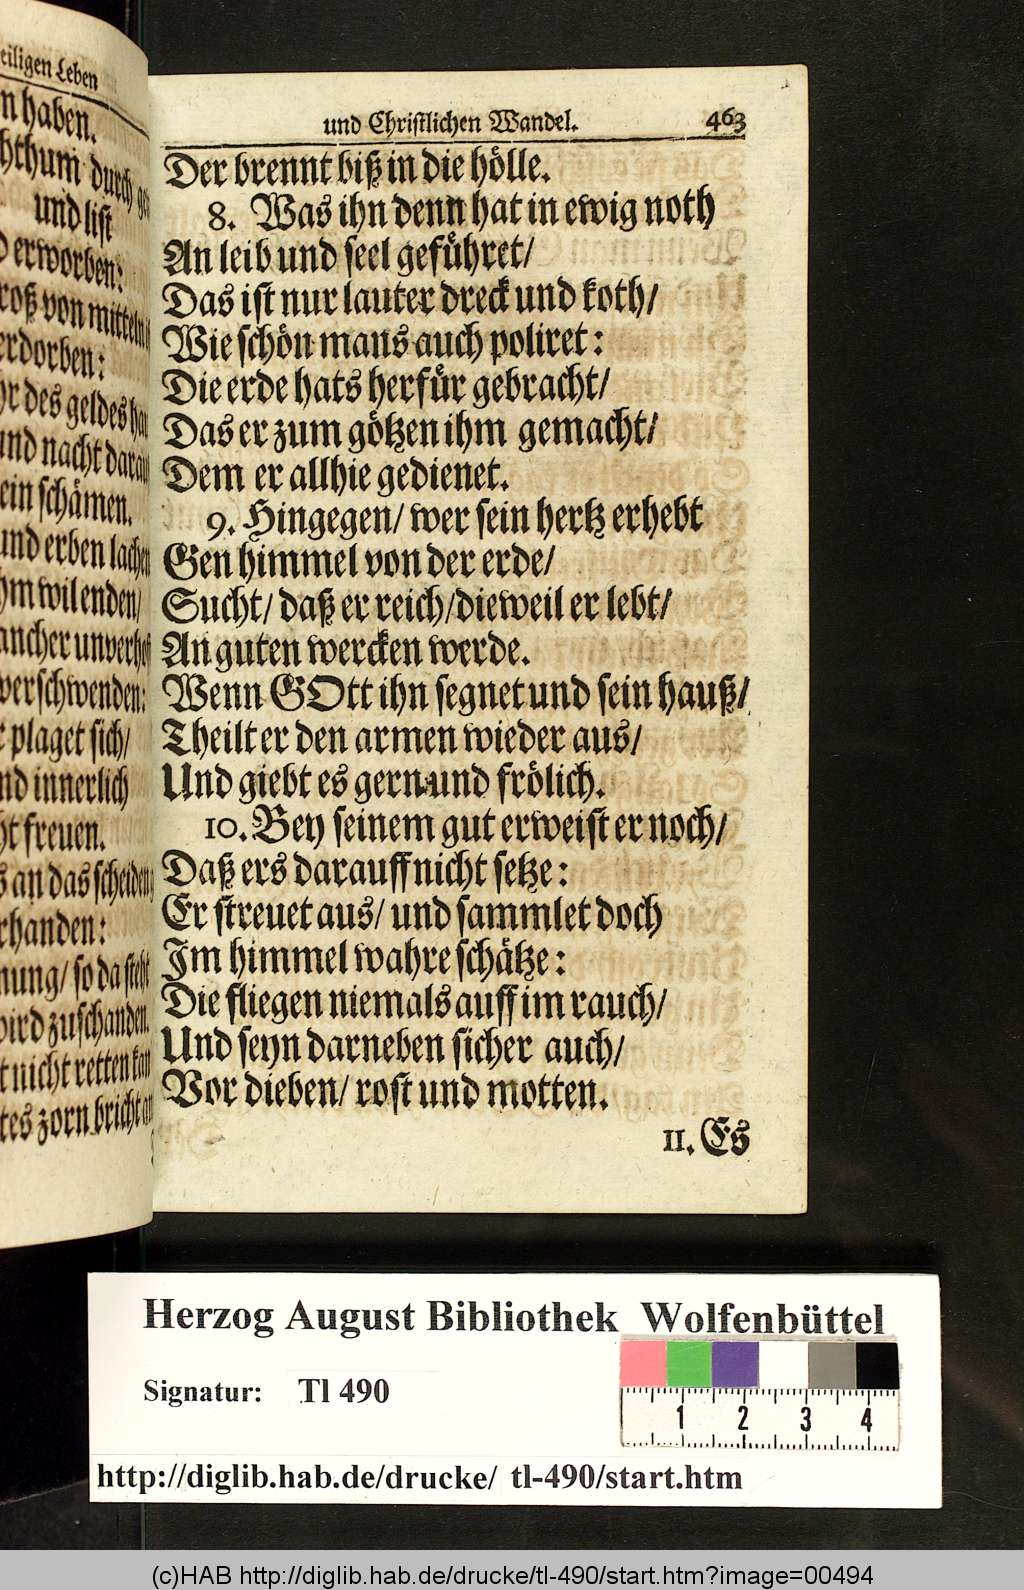 eiligen Leben
n haben.
hthum durch
und list
erworben:
roß von mitteln
erdorben:
des geldes
und nacht
ein schämen.
und erben lachen
wil enden/
ancher
verschwenden:
plaget sich/
nd innerlich
ht freuen.
an das scheiden
rhanden:
nung/ so da steht
wird zuschanden.
nicht retten kan
tes zorn bricht
und Christlichen Wandel. 463
Der brennt biß in die hölle.
8. Was ihn denn hat in ewig noth
An leib und seel geführet/
Das ist nur lauter dreck und koth/
Wie schön mans auch poliret:
Die erde hats herfür gebracht/
Das er zum götzen ihm gemacht/
Dem er allhie gedienet.
9. Hingegen/ wer sein hertz erhebt
Gen himmel von der erde/
Sucht/ daß er reich/dieweil er lebt/
An guten wercken werde.
Wenn GOtt ihn segnet und sein hauß/
Theilt er den armen wieder aus/
Und giebt es gern und frölich.
10. Bey seinem gut erweist er noch/
Daß ers darauff nicht setze:
Er streuet aus/ und sammlet doch
Im himmel wahre schätze:
Die fliegen niemals auff im rauch/
Und seyn darneben sicher auch/
Vor dieben/ rost und motten.
11. Es
Herzog August Bibliothek Wolfenbüttel
Signatur: Tl 490
1 2 3 4
http://diglib.hab.de/drucke/ tl-490/start.htm
(c)HAB http://diglib.hab.de/drucke/tl-490/start.htm?image=00494